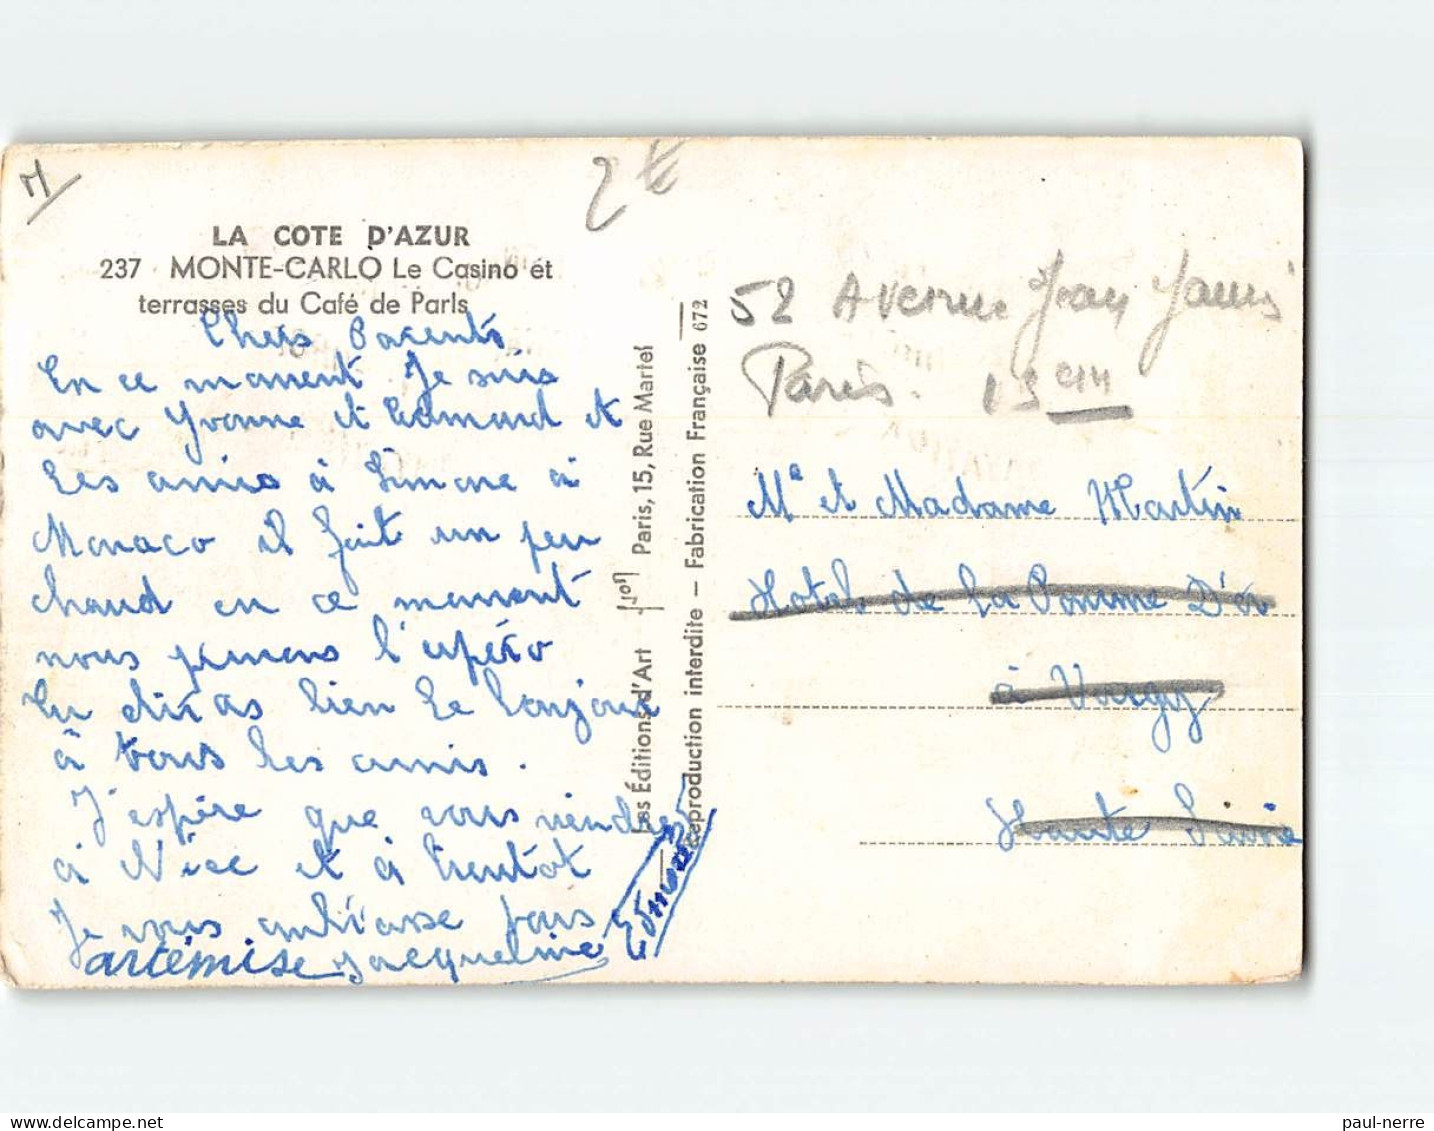 M
2€
LA COTE D'AZUR
237 MONTE-CARLO Le Casino et
terrasses du Café de Paris
Chers Parents
En ce moment Je suis
avec Yvonne et Edmond et
Les amis à Simone à
Monaco il fait un peu
chaud en ce moment
nous prenons l'apéro
Tu diras bien le bonjour
à tous les amis.
J'espère que vous viendres
à Nice et à bientôt
Je vous embrasse tous
artémise Jacqueline
Edmond
Les Éditions d'Art Yvon Paris, 15, Rue Martel
Reproduction interdite – Fabrication Française 672
52 Avenue Jean Jaurès
Paris. 19 em
Mr et Madame Martin
Hotels de la Pomme D'or
à
Haute
paul-nerre